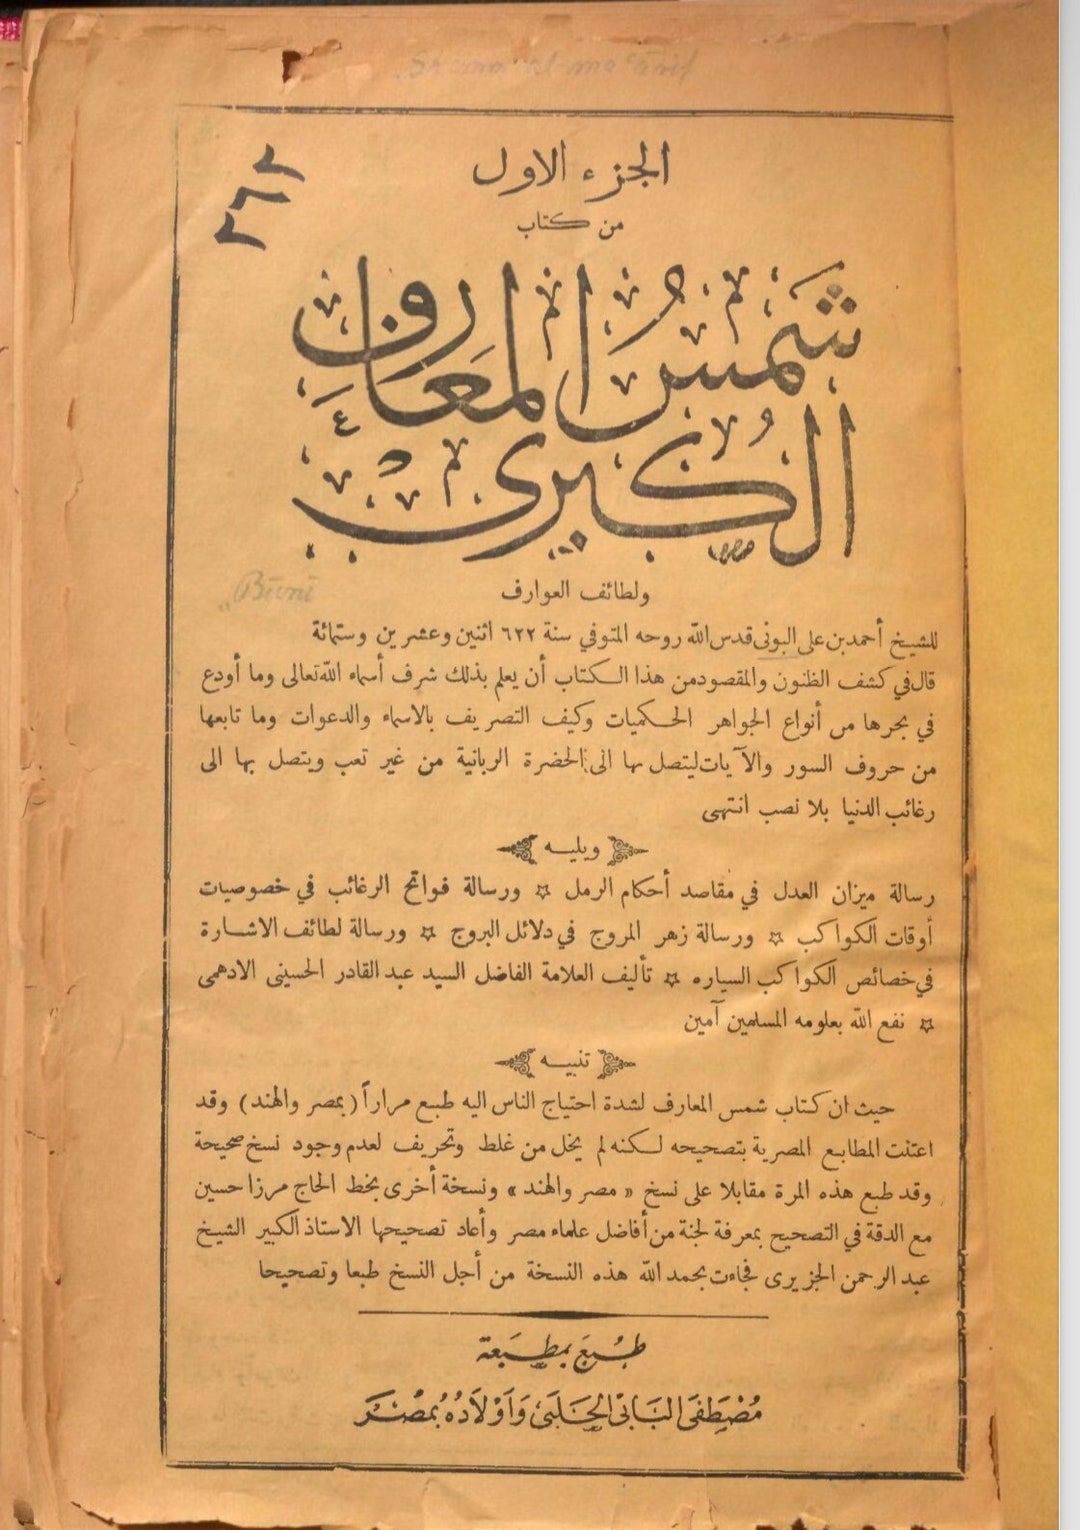 Shams al-ma'ārif.
٢٦٢
الجزء الاول
من كتاب
شمس المعارف
الكبرى
ولطائف العوارف
Būnī
للشيخ أحمد بن على البونى قدس الله روحه المتوفي سنة ٦٢٢ اثنين وعشرين وستمائة
قال في كشف الظنون والمقصود من هذا الكتاب أن يعلم بذلك شرف أسماء الله تعالى وما أودع
في بحرها من أنواع الجواهر الحكميات وكيف التصريف بالاسماء والدعوات وما تابعها
من حروف السور والآيات ليتصل بها الى الحضرة الربانية من غير تعب ويتصل بها الى
رغائب الدنيا بلا نصب انتهى
ويليه
رسالة ميزان العدل في مقاصد أحكام الرمل ۞ ورسالة فواتح الرغائب في خصوصيات
أوقات الكواكب ۞ ورسالة زهر المروج في دلائل البروج ۞ ورسالة لطائف الاشارة
في خصائص الكواكب السياره ۞ تأليف العلامة الفاضل السيد عبد القادر الحسينى الادهمى
۞ نفع الله بعلومه المسلمين آمين
تنبيه
حيث ان كتاب شمس المعارف لشدة احتياج الناس اليه طبع مراراً (بمصر والهند) وقد
اعتنت المطابع المصرية بتصحيحه لكنه لم يخل من غلط وتحريف لعدم وجود نسخ صحيحة
وقد طبع هذه المرة مقابلا على نسخ « مصر والهند » ونسخة أخرى بخط الحاج مرزا حسين
مع الدقة في التصحيح بمعرفة لجنة من أفاضل علماء مصر وأعاد تصحيحها الاستاذ الكبير الشيخ
عبد الرحمن الجزيرى فجاءت بحمد الله هذه النسخة من أجل النسخ طبعا وتصحيحا
طُبعَ بمطبَعة
مُصْطَفَى البَابى الحَلَبى وَاَوْلاَدُه بمصْرَ